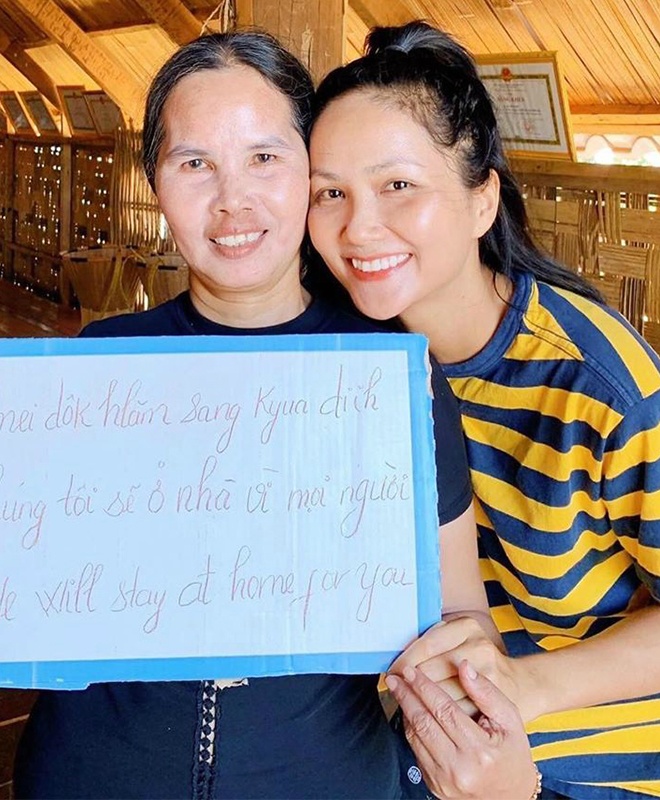 mei dôk hlăm sang Kyua diih
húng tôi sẽ ở nhà vì mọi người
We will stay at home for you